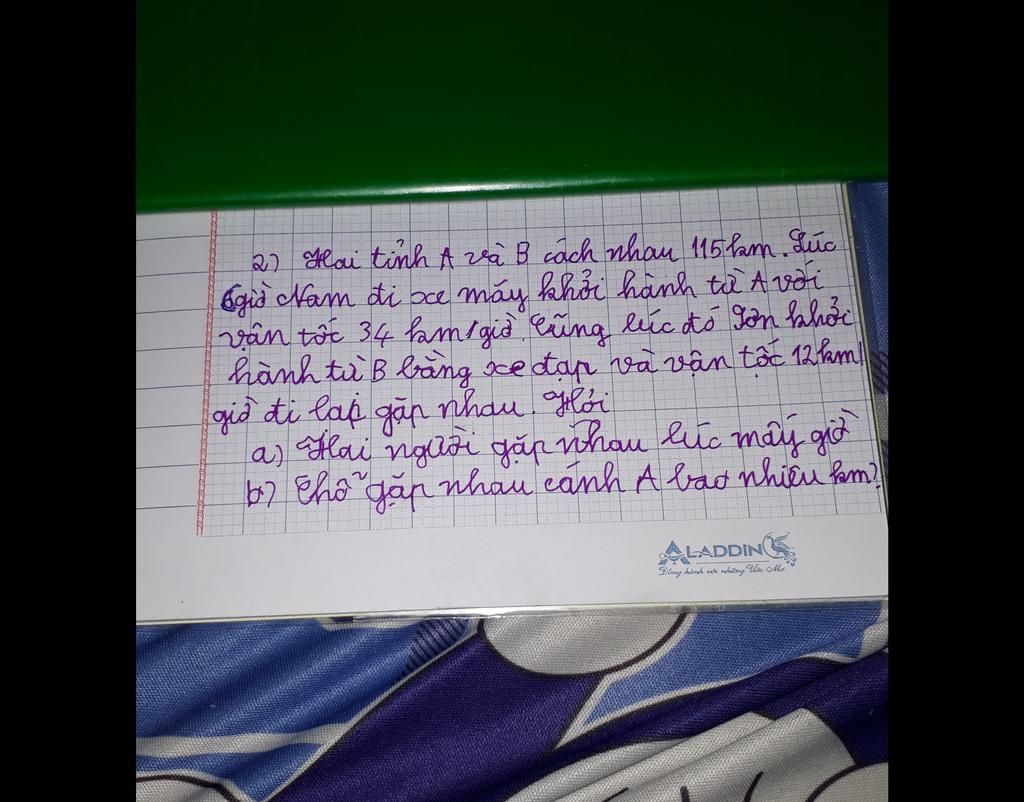 2) Hai tỉnh A và B cách nhau 115 km. Lúc
6 giờ Nam đi xe máy khởi hành từ A với
vận tốc 34 km/giờ. Cũng lúc đó Sơn khởi
hành từ B bằng xe đạp và vận tốc 12 km/
giờ đi lại gặp nhau. Hỏi
a) Hai người gặp nhau lúc mấy giờ
b) Chỗ gặp nhau cánh A bao nhiêu km?
ALADDIN
Đồng hành với những Ước Mơ